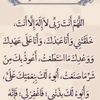 اللَّهُمَّ أَنْتَ رَبِّي لَا إِلَهَ إِلَّا أَنْتَ،
خَلَقْتَنِي وَأَنَا عَبْدُكَ، وَأَنَا عَلَى عَهْدِكَ
وَوَعْدِكَ مَا اسْتَطَعْتُ، أَعُوذُ بِكَ مِنْ
شَرِّ مَا صَنَعْتُ، أَبُوءُ لَكَ بِنِعْمَتِكَ عَلَيَّ
وَأَبُوءُ لَكَ بِذَنْبِي، فَاغْفِرْ لِي، فَإِنَّهُ